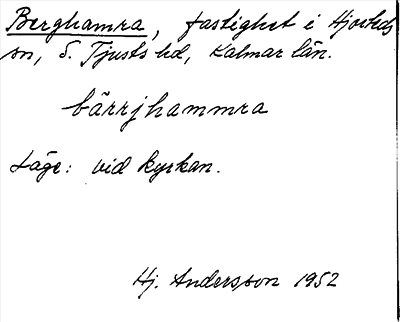 Berghamra, fastighet i Hjorteds
sn, S. Tjusts hd, Kalmar län.
bärrjhammra
Läge: vid kyrkan.
Hj. Andersson 1952